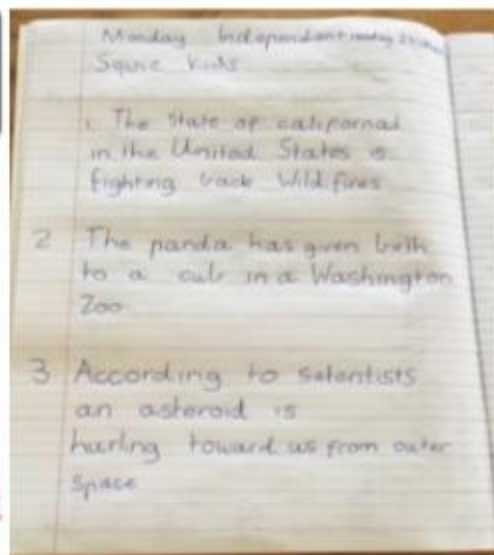 Monday Independent
Squiz Kids
1. The state of californal
in the United States is
fighting back Wildfires
2 The panda has given birth
to a cub in a Washington
Zoo
3 According to scientists
an asteroid is
hurling toward us from outer
Space